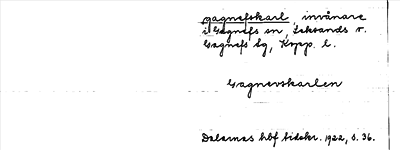 gagnefskarl, invånare
i Gagnefs sn, Leksands t.
Gagnefs tg, Kopp. l.
Gagnevskarlen
Dalarnas hbf tidskr. 1922, s. 36.